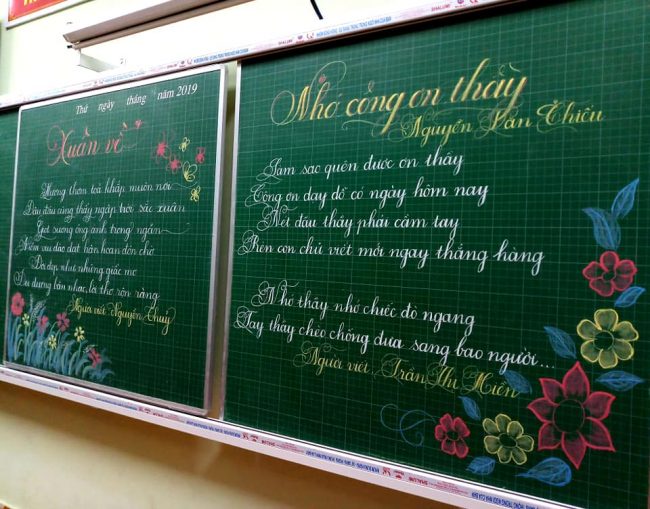 Thứ ngày tháng năm 2019
Xuân về
Hương thơm toả khắp muôn nơi
Đâu đâu cũng thấy ngập trời sắc xuân
Giọt sương óng ánh trong ngần
Niềm vui dào dạt hân hoan đón chờ
Đời đẹp như những giấc mơ
Du dương bản nhạc, lời thơ rộn ràng
Người viết: Nguyễn Thuỷ
Nhớ công ơn thầy
Nguyễn Văn Thiều
Làm sao quên được ơn thầy
Công ơn dạy dỗ có ngày hôm nay
Nét đầu thầy phải cầm tay
Rèn con chữ viết mới ngay thẳng hàng
Nhớ thầy nhớ chiếc đò ngang
Tay thầy chèo chống đưa sang bao người...
Người viết: Trần Thu Hiền